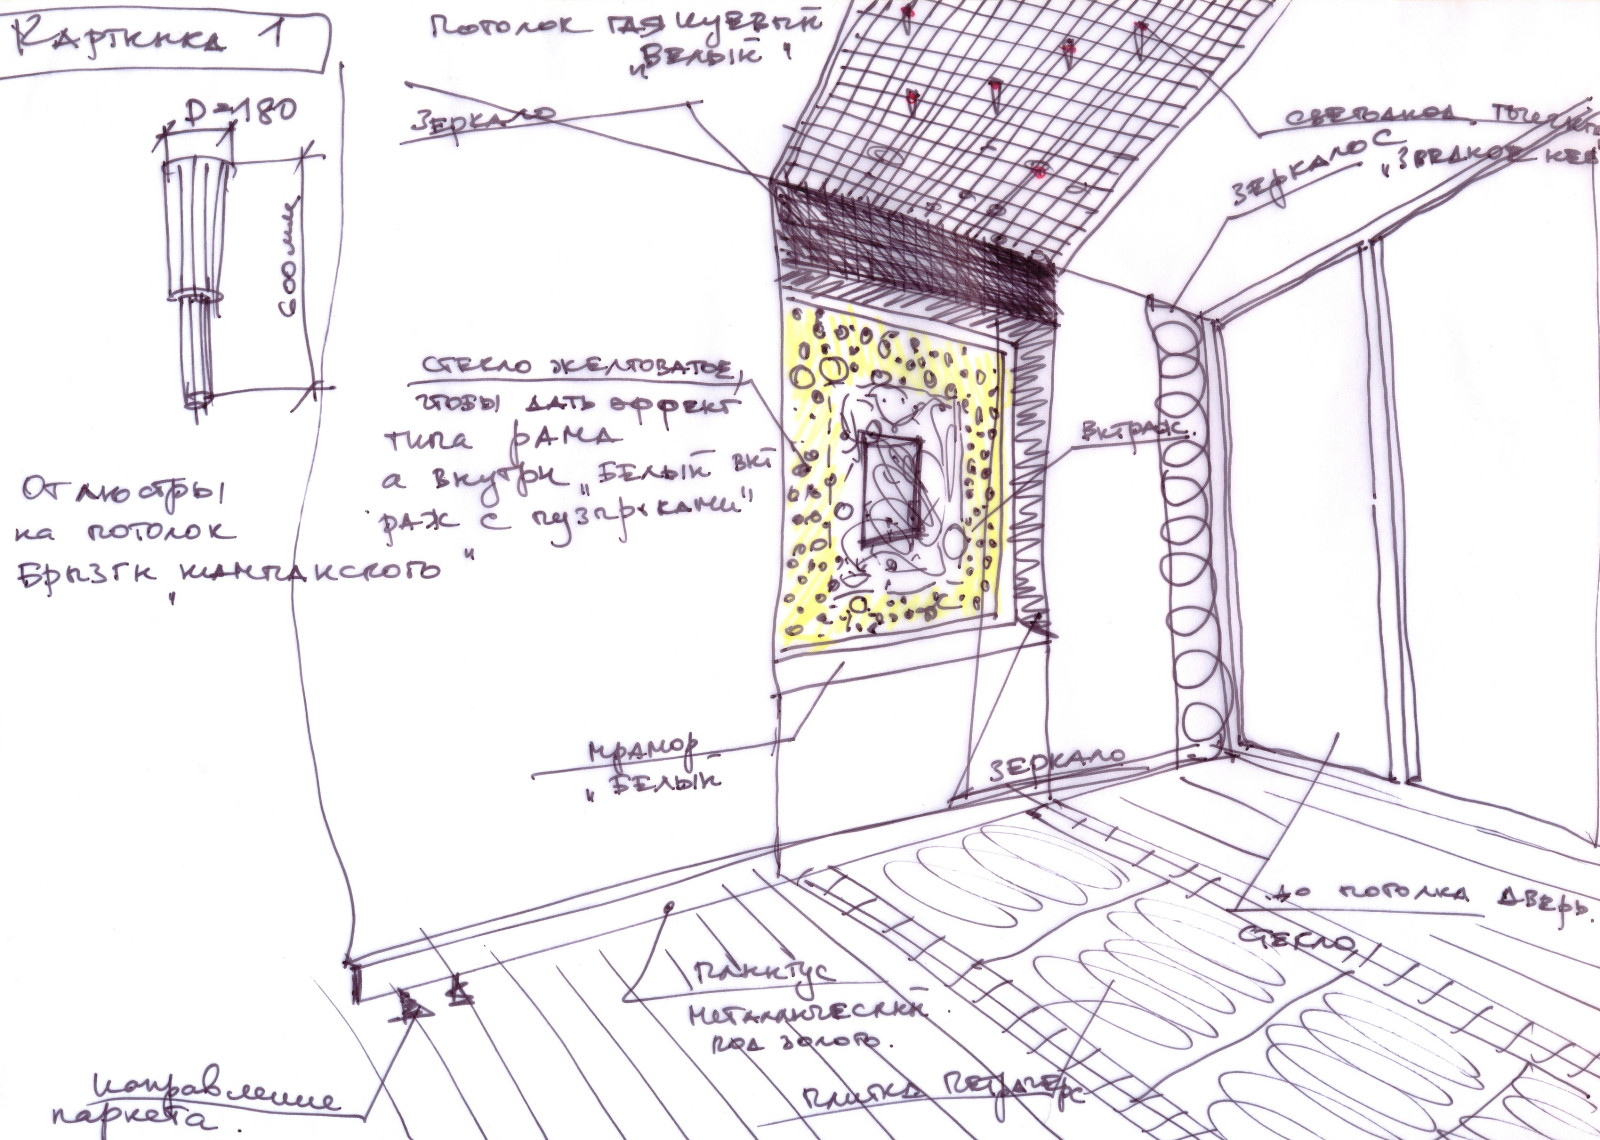 Картинка 1
Потолок глянцевый
"Белый"
D=180
Зеркало
светодиод. тычинки
Зеркало с
"Звездное неб
600мм
стекло желтоватое,
чтобы дать эффект
типа рама
а внутри "Белый вит
раж с пузырьками"
витраж.
От люстры
на потолок
Брызги "шампанского"
мрамор
"Белый
зеркало
до потолка дверь.
стекло
плинтус
металлический
под золото.
направление
паркета.
плитка